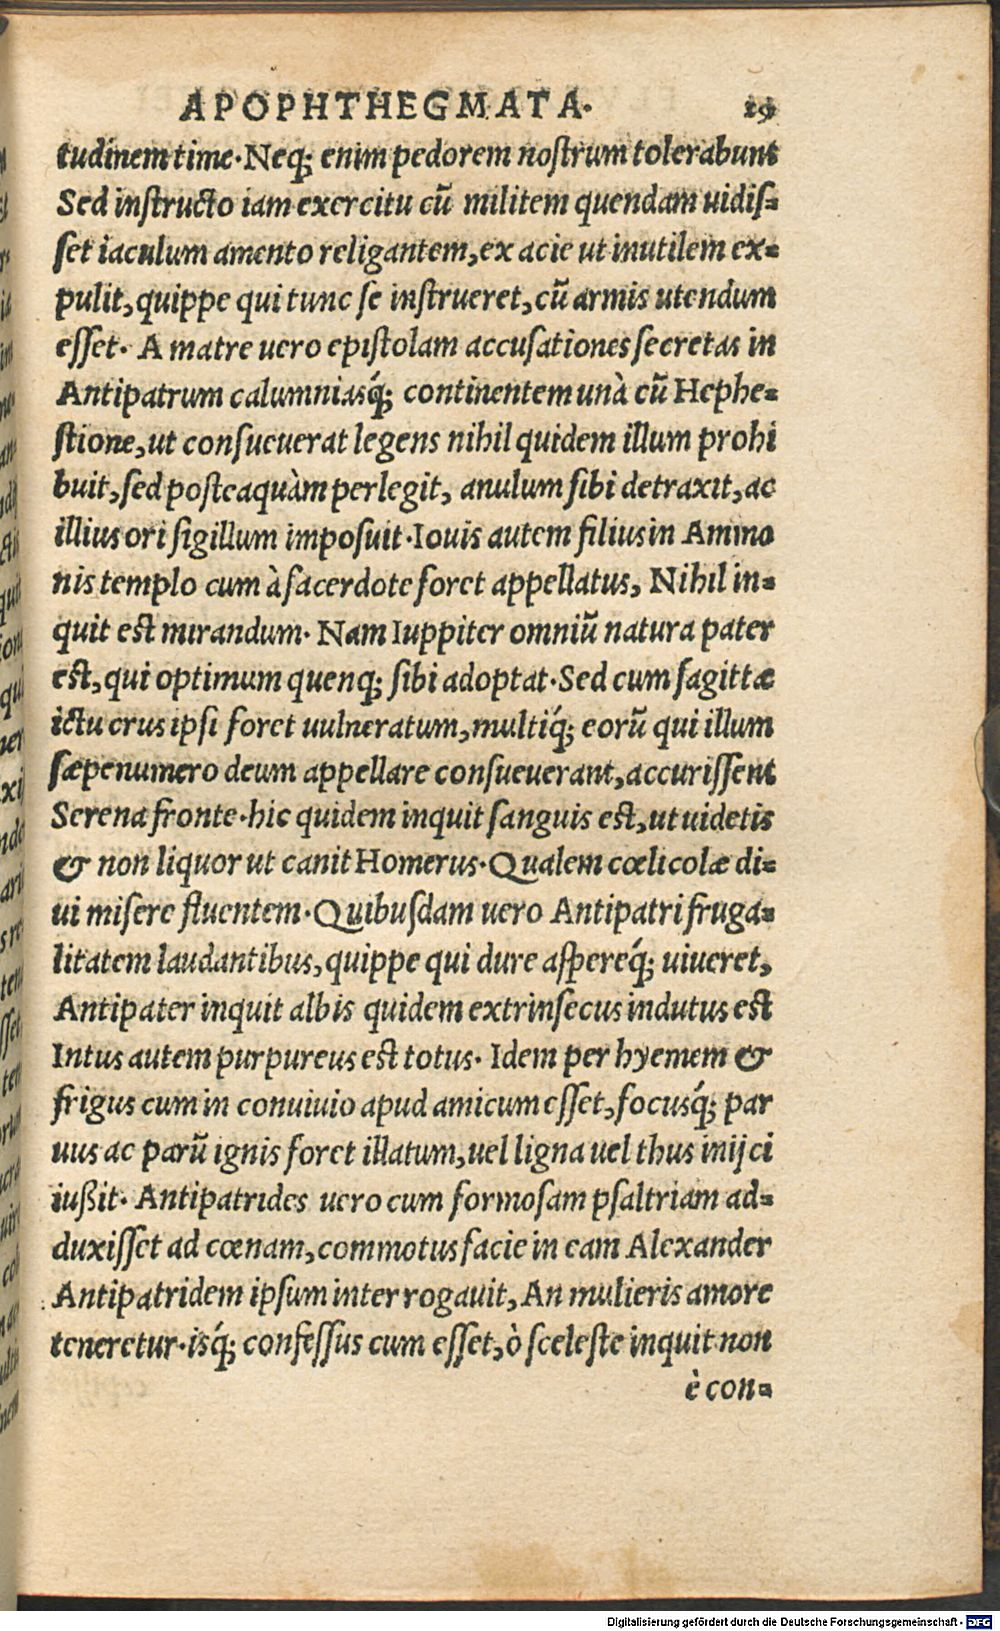 APOPHTHEGMATA. 19
tudinem time. Neq; enim pedorem noſtrum tolerabunt
Sed inſtructo iam exercitu cū militem quendam uidiſ-
ſet iaculum amento religantem, ex acie ut inutilem ex-
pulit, quippe qui tunc ſe inſtrueret, cū armis utendum
eſſet. A matre uero epiſtolam accuſationes ſecretas in
Antipatrum calumniasq́; continentem unà cū Hephe-
ſtione, ut conſueuerat legens nihil quidem illum prohi
buit, ſed poſteaquàm perlegit, anulum ſibi detraxit, ac
illius ori ſigillum impoſuit. Iouis autem filius in Ammo
nis templo cum à ſacerdote foret appellatus, Nihil in-
quit eſt mirandum. Nam Iuppiter omniū natura pater
eſt, qui optimum quenq; ſibi adoptat. Sed cum ſagittæ
ictu crus ipſi foret uulneratum, multiq́; eorū qui illum
ſæpenumero deum appellare conſueuerant, accuriſſent
Serena fronte. hic quidem inquit ſanguis eſt, ut uidetis
& non liquor ut canit Homerus. Qualem cœlicolæ di-
ui miſere fluentem. Quibuſdam uero Antipatri fruga-
litatem laudantibus, quippe qui dure aſpereq́; uiueret,
Antipater inquit albis quidem extrinſecus indutus eſt
Intus autem purpureus eſt totus. Idem per hyemem &
frigus cum in conuiuio apud amicum eſſet, focusq́; par
uus ac parū ignis foret illatum, uel ligna uel thus inijci
iußit. Antipatrides uero cum formoſam pſaltriam ad-
duxiſſet ad cœnam, commotus facie in eam Alexander
Antipatridem ipſum interrogauit, An mulieris amore
teneretur. isq́; confeſſus cum eſſet, ò ſceleſte inquit non
è con-
Digitalisierung gefördert durch die Deutsche Forschungsgemeinschaft - DFG